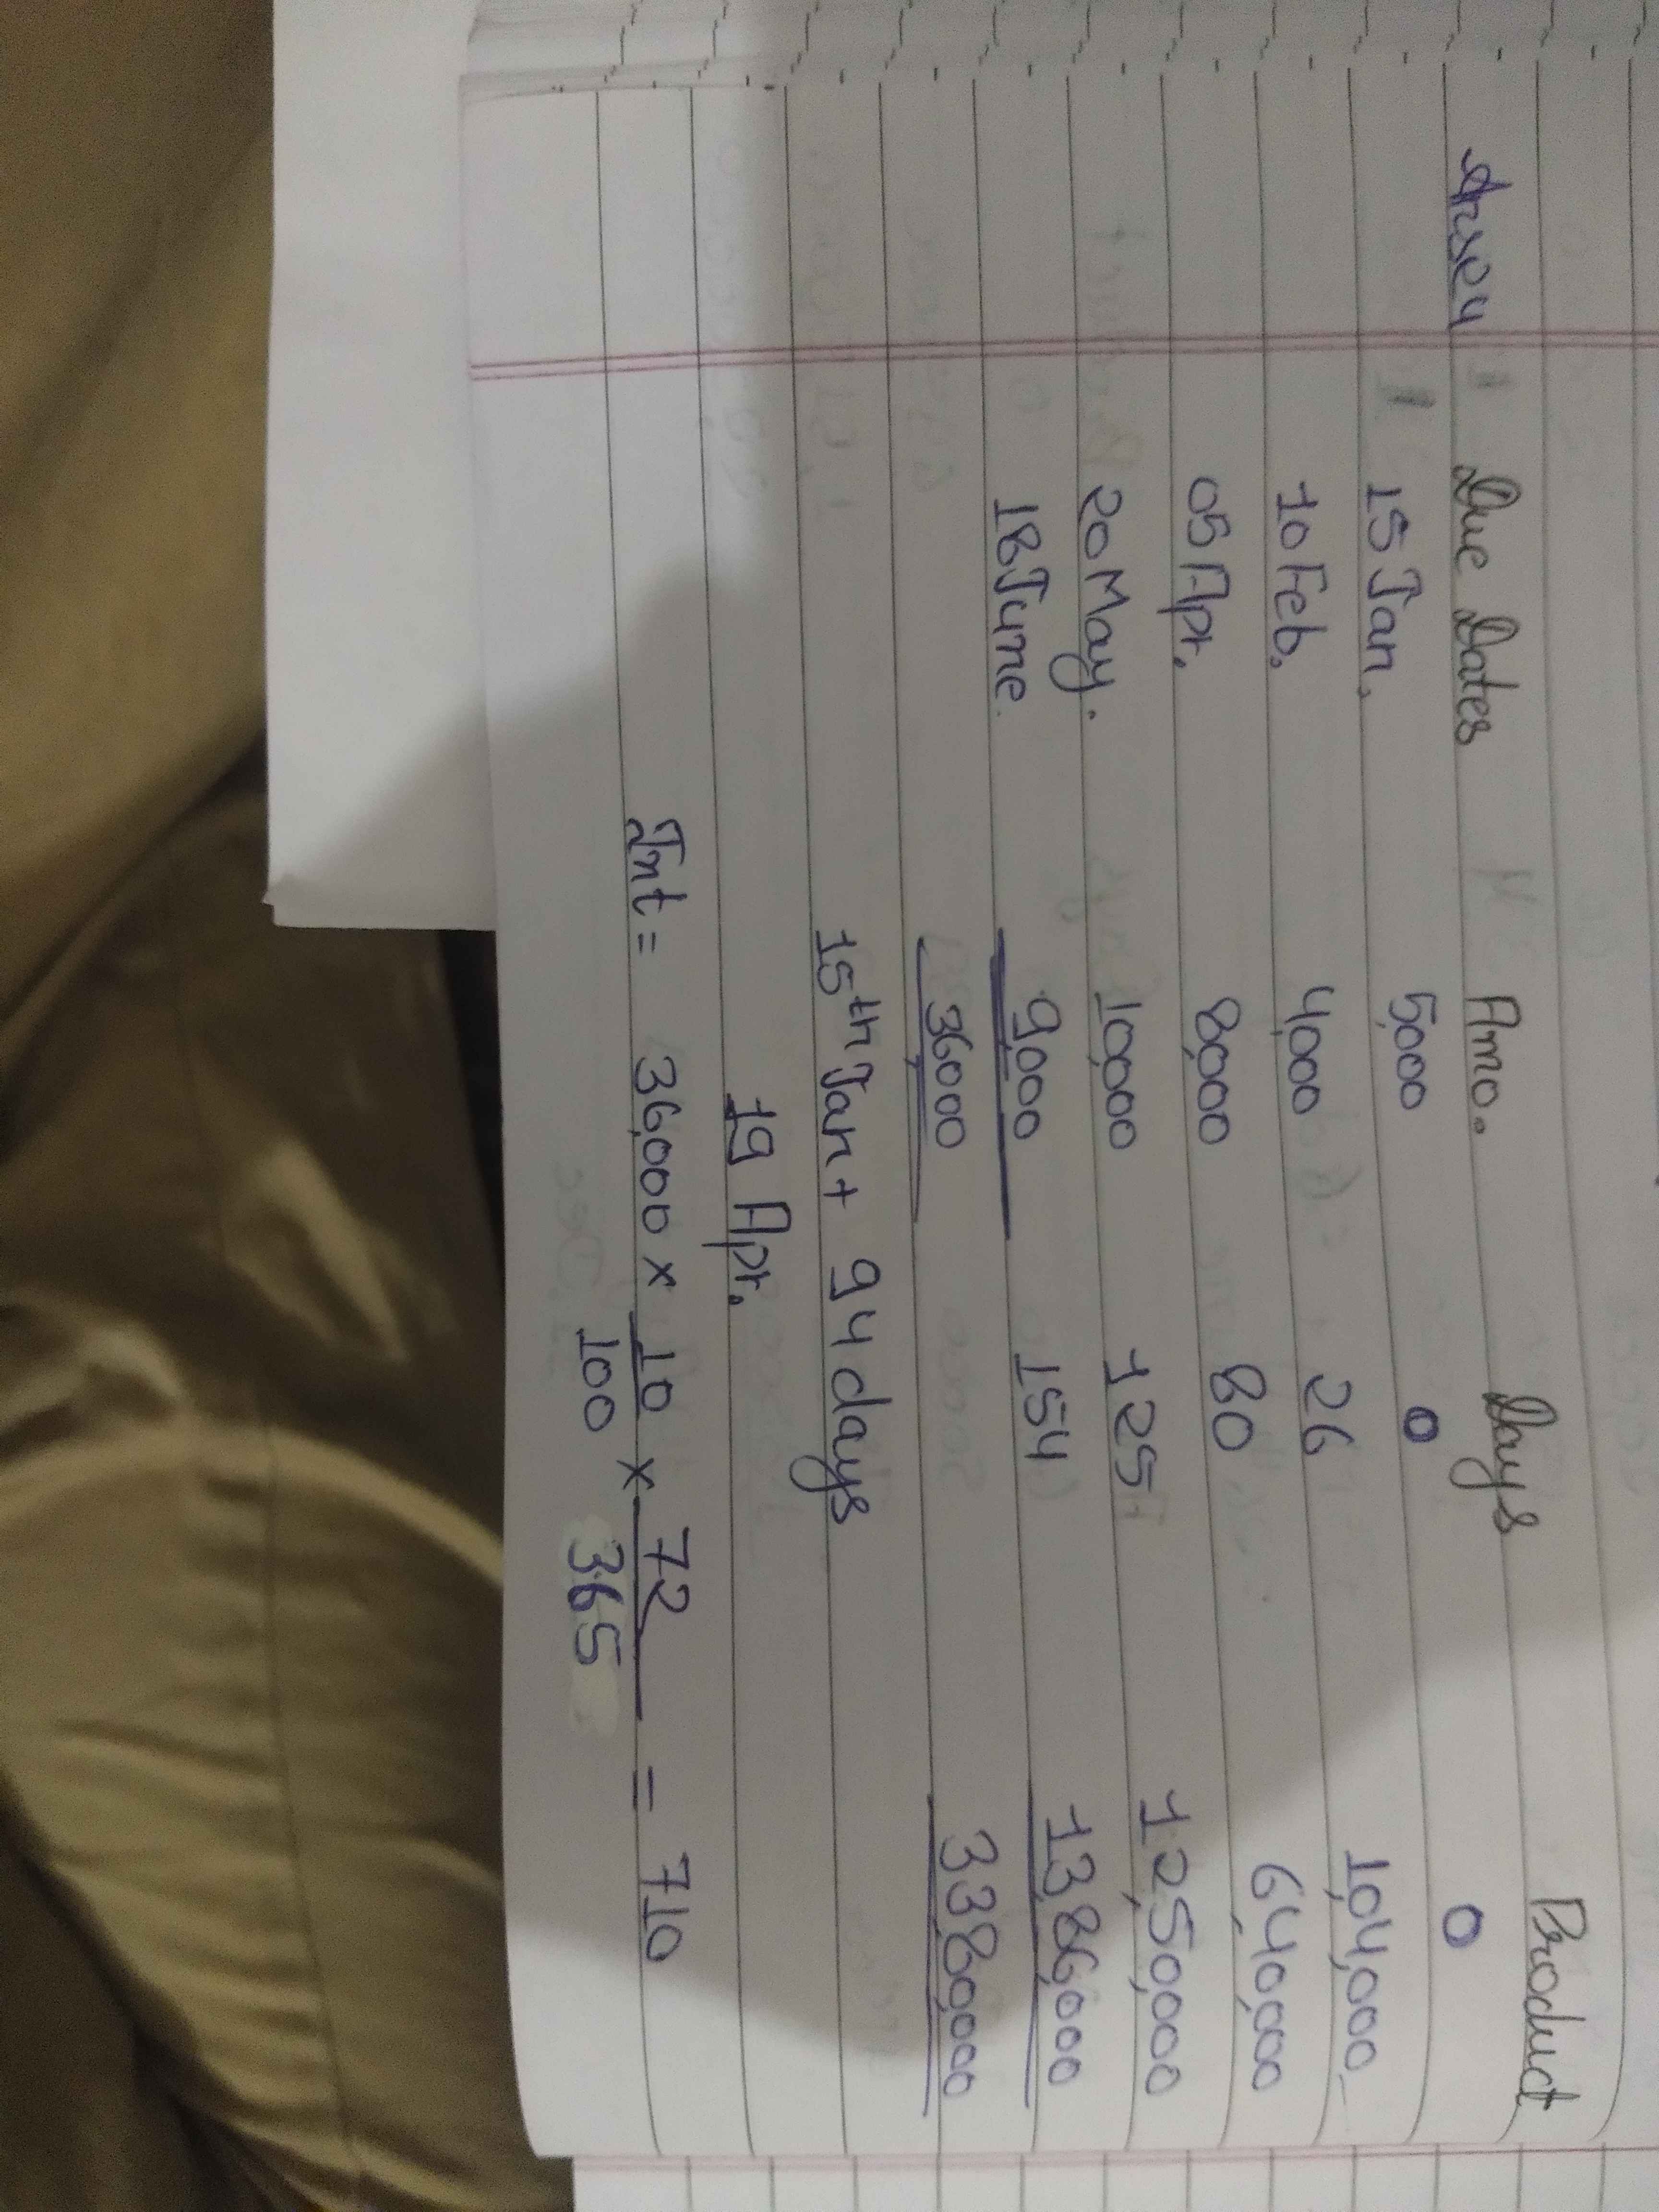 Answer
Due Dates Amo. Days Product
15 Jan. 5,000 0 0
10 Feb. 4,000 26 1,04,000
05 Apr. 8,000 80 6,40,000
20 May. 10,000 125 12,50,000
18 June. 9,000 154 13,86,000
36,000 33,80,000
15th Jan + 94 days
19 Apr.
Int = 36,000 × 10/100 × 72/365 = 710